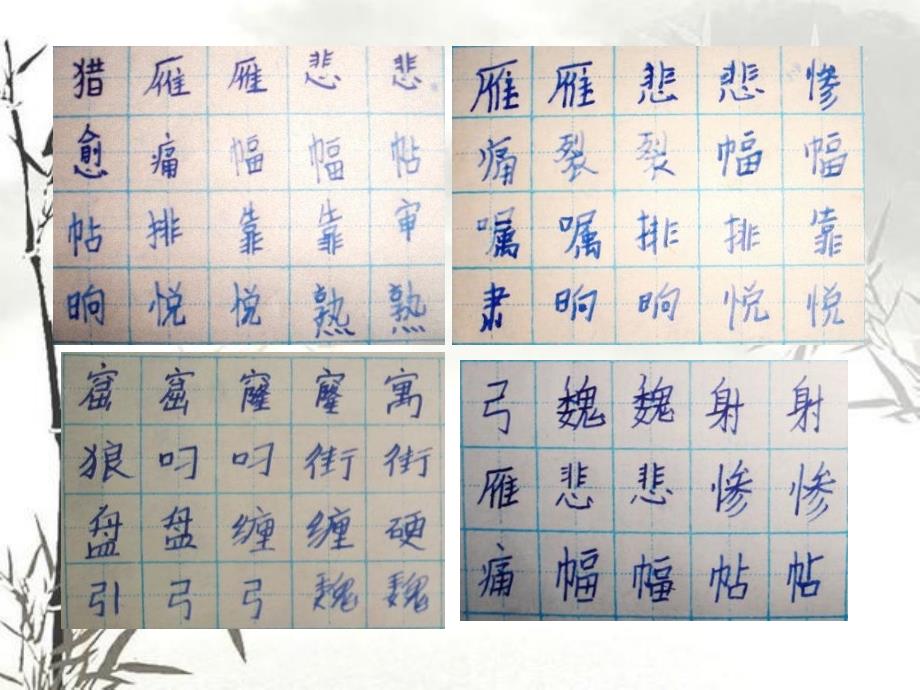 猎 雁 雁 悲 悲
愈 痛 幅 幅 帖
帖 排 靠 靠 审
晌 悦 悦 熟 熟
雁 雁 悲 悲 惨
痛 裂 裂 幅 幅
嘱 嘱 排 排 靠
肃 晌 晌 悦 悦
窟 窟 窿 窿 寓
狼 叼 叼 街 街
盘 盘 缠 缠 硬
引 弓 弓 魏 魏
弓 魏 魏 射 射
雁 悲 悲 惨 惨
痛 幅 幅 帖 帖